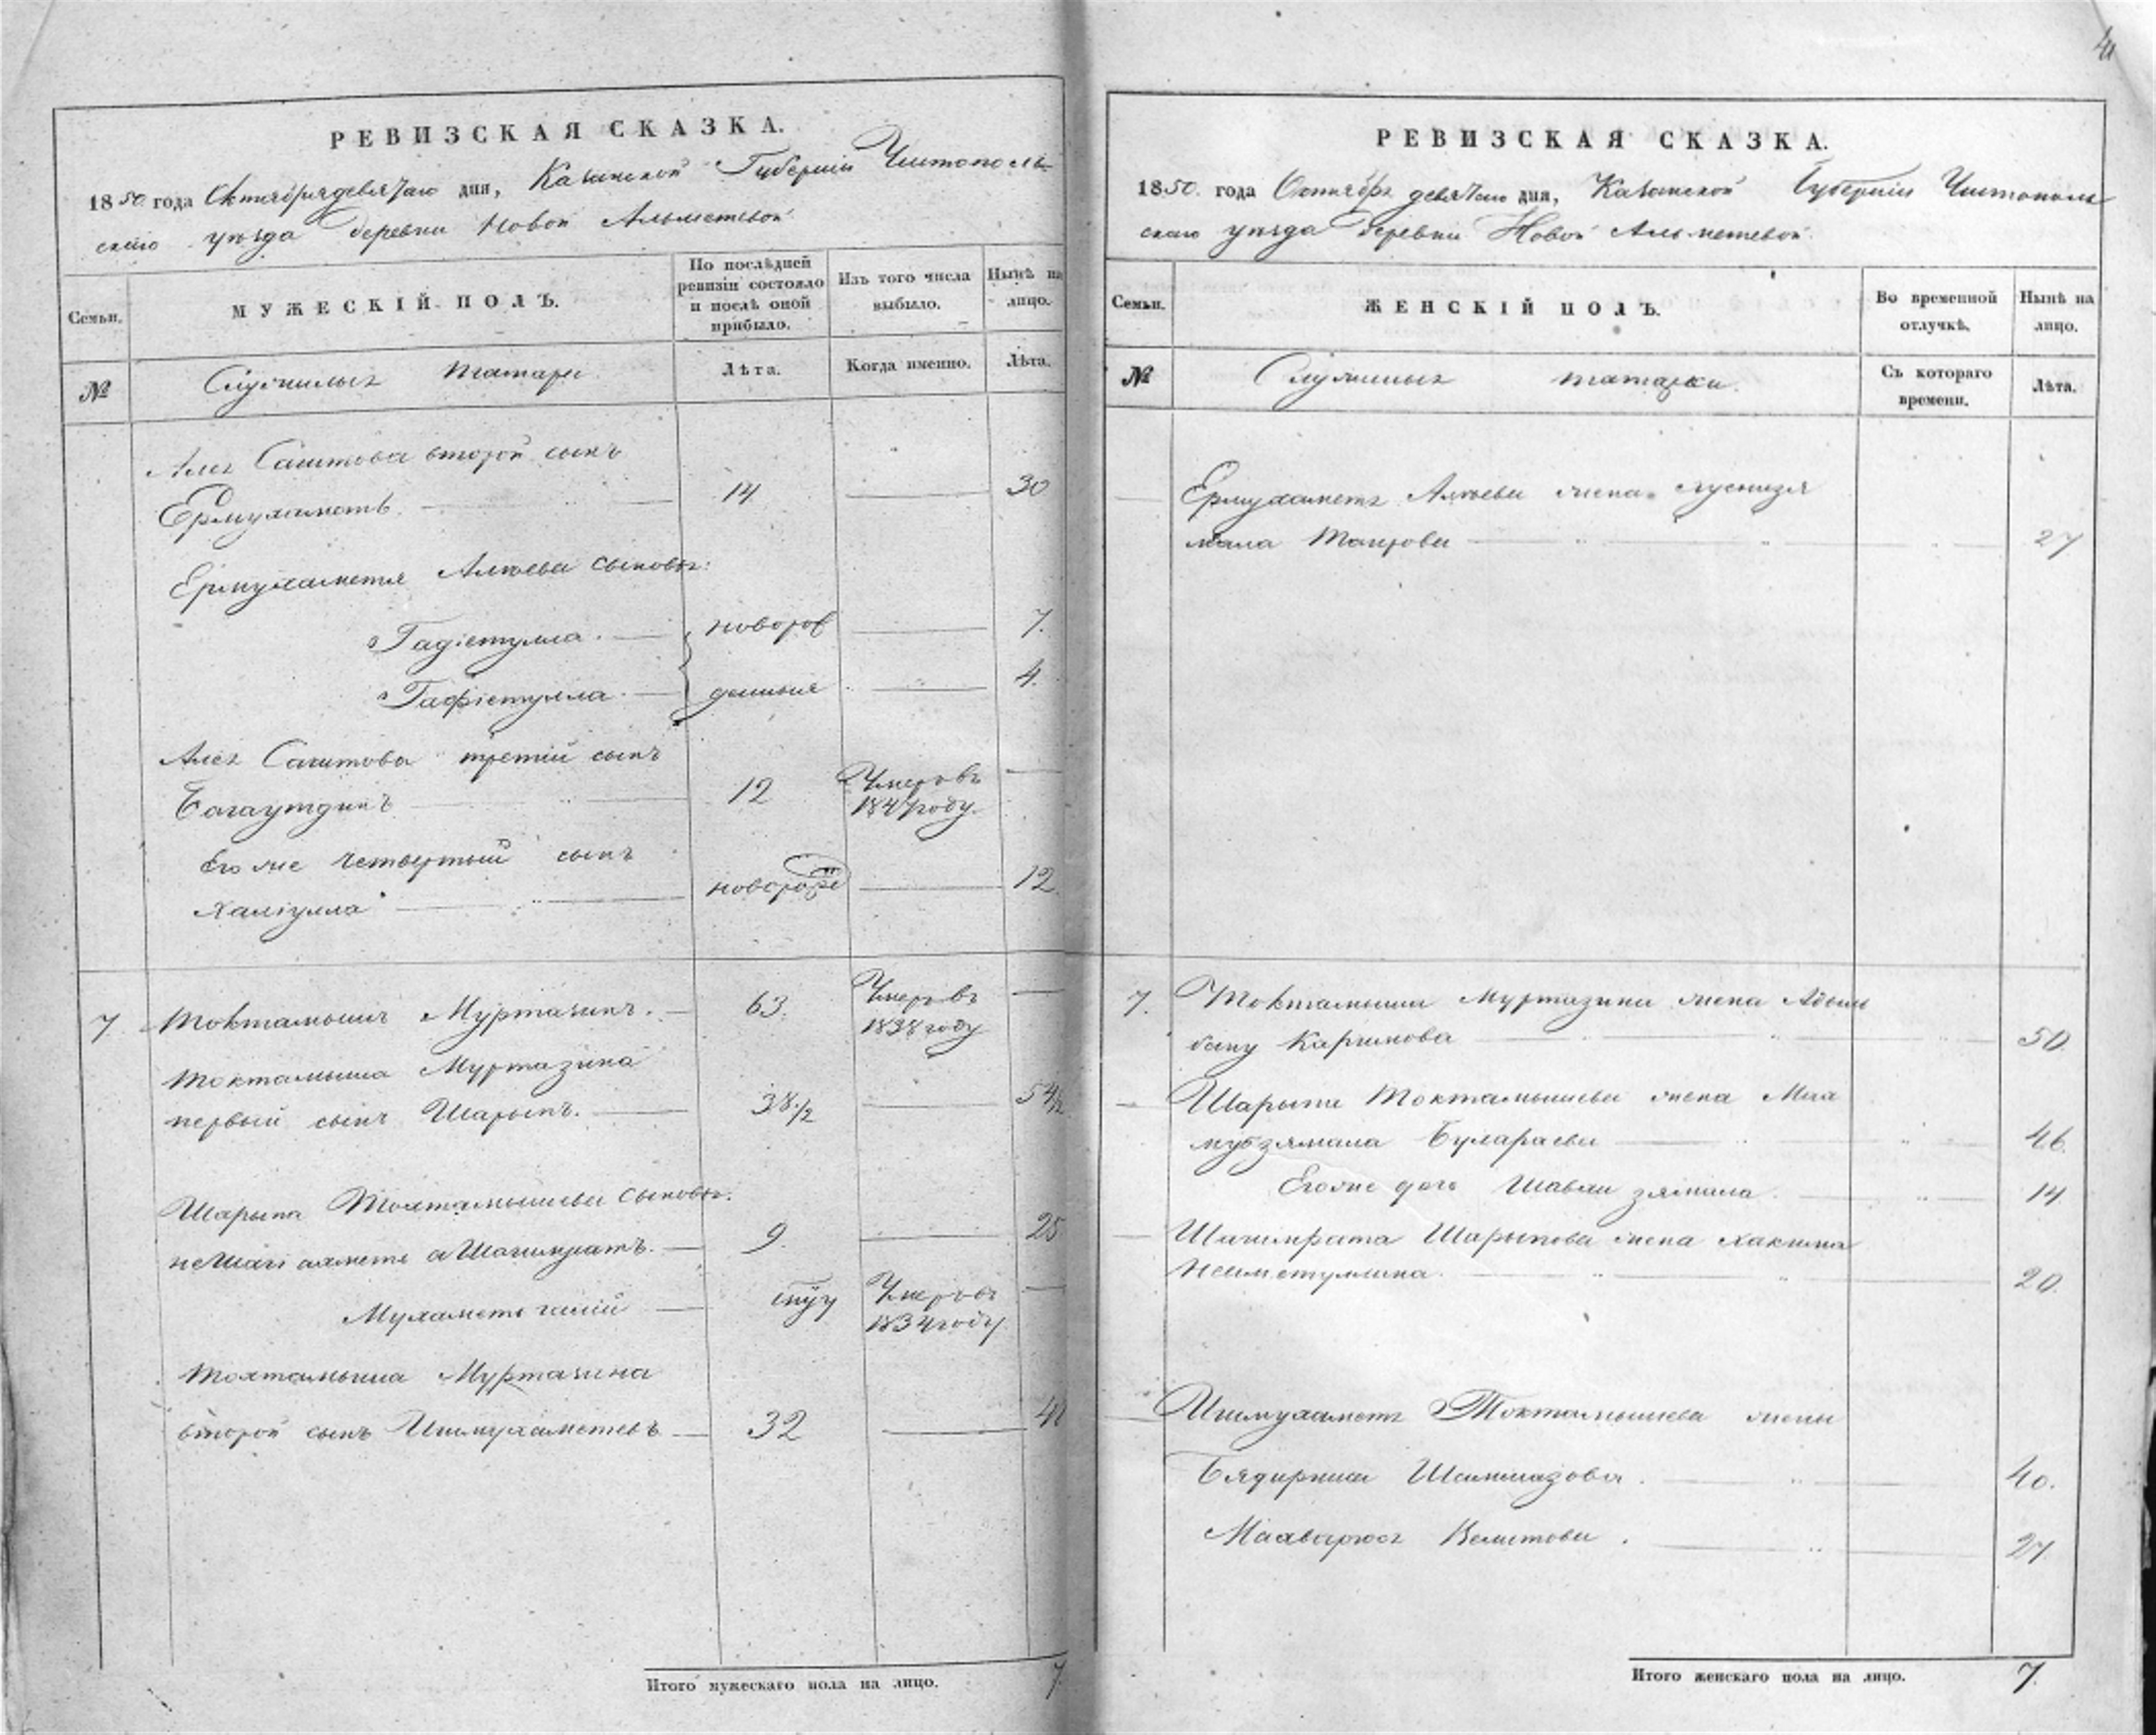 РЕВИЗСКАЯ СКАЗКА.
1850 года Октября девятаго дня, Казанской Губернiи Чистополь
скаго уѣзда деревни Новой Альметевой
Семьи.
МУЖЕСКIЙ ПОЛЪ.
По послѣдней ревизiи состояло и послѣ оной прибыло.
Изъ того числа выбыло.
Нынѣ на лицо.
№
Служилыхъ татаръ
Лѣта.
Когда именно.
Лѣта.
Сагитова второй сынъ
Ермухаметъ 14 30
Ермухаметя Алѣева сыновья:
Гадiетулла новорож 7.
Гафiетулла денные 4.
Сагитова третiй сынъ
Багаутдинъ 12 Умеръ въ 1847 году
Его же четвертый сынъ
Халiулла новорож 12
7 Токтамышъ Муртазинъ. 63. Умеръ въ 1838 году
Токтамыша Муртазина
первый сынъ Шарыпъ. 38 1/2 54 1/2
Шарыпа Тохтамышева сыновья.
Шагимратъ. 9. 25
Мухаметь Умеръ въ 1834 году
Тохтамыша Муртазина
второй сынъ Ишмухаметевъ 32 48
Итого мужескаго пола на лицо. 7.
41
РЕВИЗСКАЯ СКАЗКА.
1850 года Октября девятаго дня, Казанской Губернiи Чистополь
скаго уѣзда деревни Новой Альметевой
Семьи.
ЖЕНСКIЙ ПОЛЪ.
Во временной отлучкѣ.
Нынѣ на лицо.
№
Служилыхъ татарки.
Съ котораго времени.
Лѣта.
Ермухаметя Алѣева жена
Таирова 27
7. Токтамыша Муртазина жена Абыш
бану Каримова 50
Шарыпа Токтамышева жена
мубзямала Булараева 46
Его же дочь зямала 14
Шагимрата Шарыпова жена Хакима
Неиметуллина 20.
Ишмухаметя Токтамышева жены
Бядирниса Шашмазова. 40.
27
Итого женскаго пола на лицо. 7.